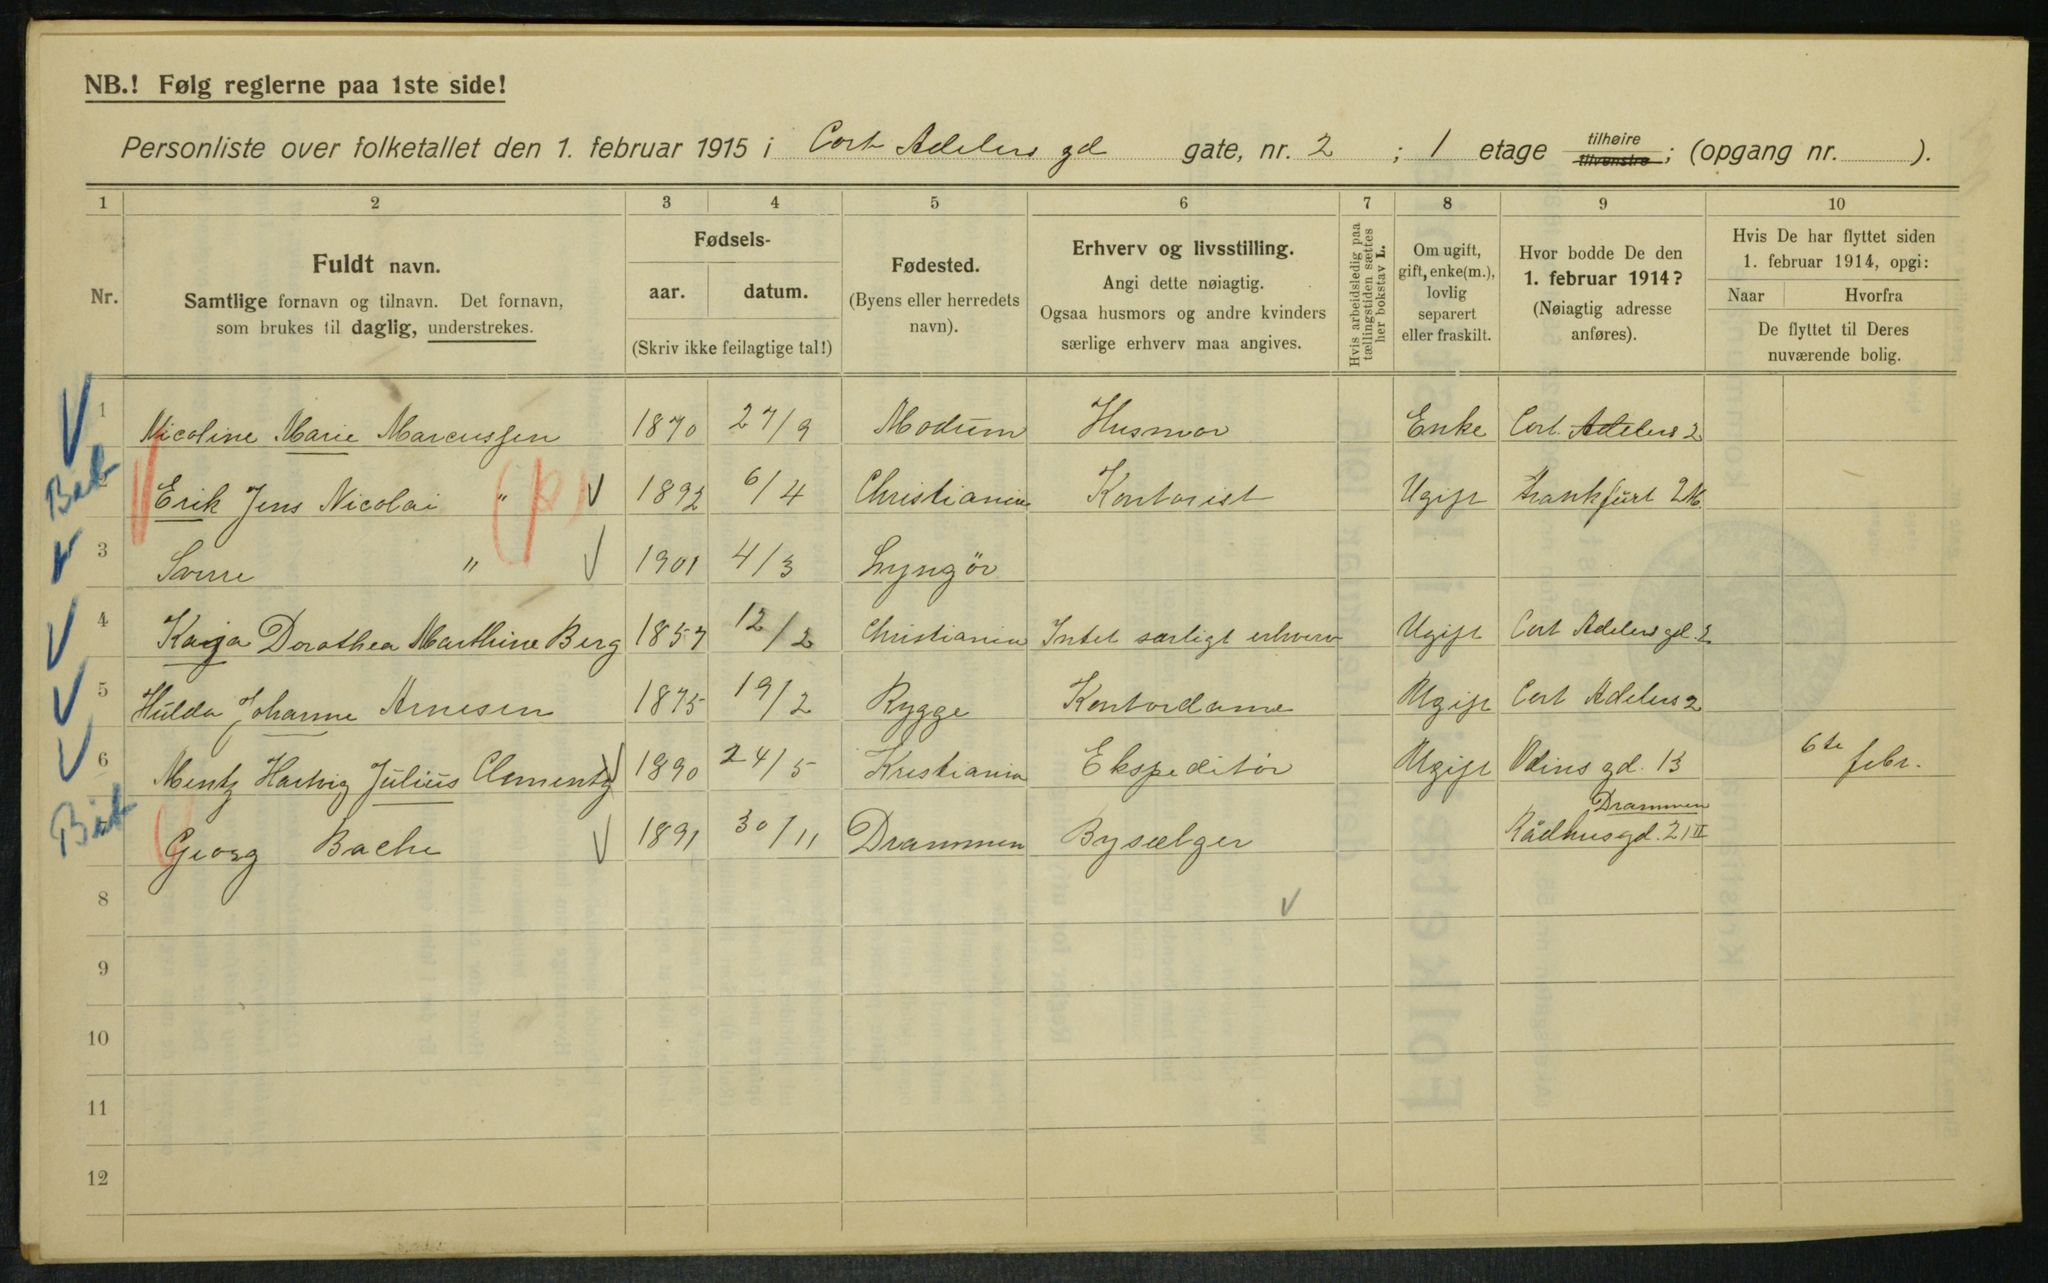 NB.! Følg reglerne paa 1ste side!
Personliste over folketallet den 1. februar 1915 i Cort Adelers gd gate, nr. 2 ; 1 etage tilhøire tilvenstre; (opgang nr. ).
1 2 3 4 5 6 7 8 9 10
Nr.
Fuldt navn.
Samtlige fornavn og tilnavn. Det fornavn,
som brukes til daglig, understrekes.
Fødsels-
aar. datum.
(Skriv ikke feilagtige tal!)
Fødested.
(Byens eller herredets
navn).
Erhverv og livsstilling.
Angi dette nøiagtig.
Ogsaa husmors og andre kvinders
særlige erhverv maa angives.
Hvis arbeidsledig paa
tællingstiden sættes
her bokstav L.
Om ugift,
gift, enke(m.),
lovlig
separert
eller fraskilt.
Hvor bodde De den
1. februar 1914?
(Nøiagtig adresse
anføres).
Hvis De har flyttet siden
1. februar 1914, opgi:
Naar Hvorfra
De flyttet til Deres
nuværende bolig.
1 Nicoline Marie Marcussen 1870 27/9 Modum Husmor Enke Cort Adelers 2
Erik Jens Nicolai " 1892 6/4 Christiania Kontorist Ugift Frankfurt
3 " 1901 4/3 Lyngör
4 Kaja Dorothea Marthine Berg 1857 12/2 Christiania Intet særligt erhverv Ugift Cort Adelers gd. 2
5 Hulda Johanne Arnesen 1875 19/2 Rygge Kontordame Ugift Cort Adelers 2
6 Mentz Hartvig Julius Clementz 1890 24/5 Kristiania Ekspeditör Ugift Odins gd. 13 6te febr.
Georg Bache 1891 30/11 Drammen Bysælger Drammen
Rådhusgd. 21 III
8
9
10
11
12